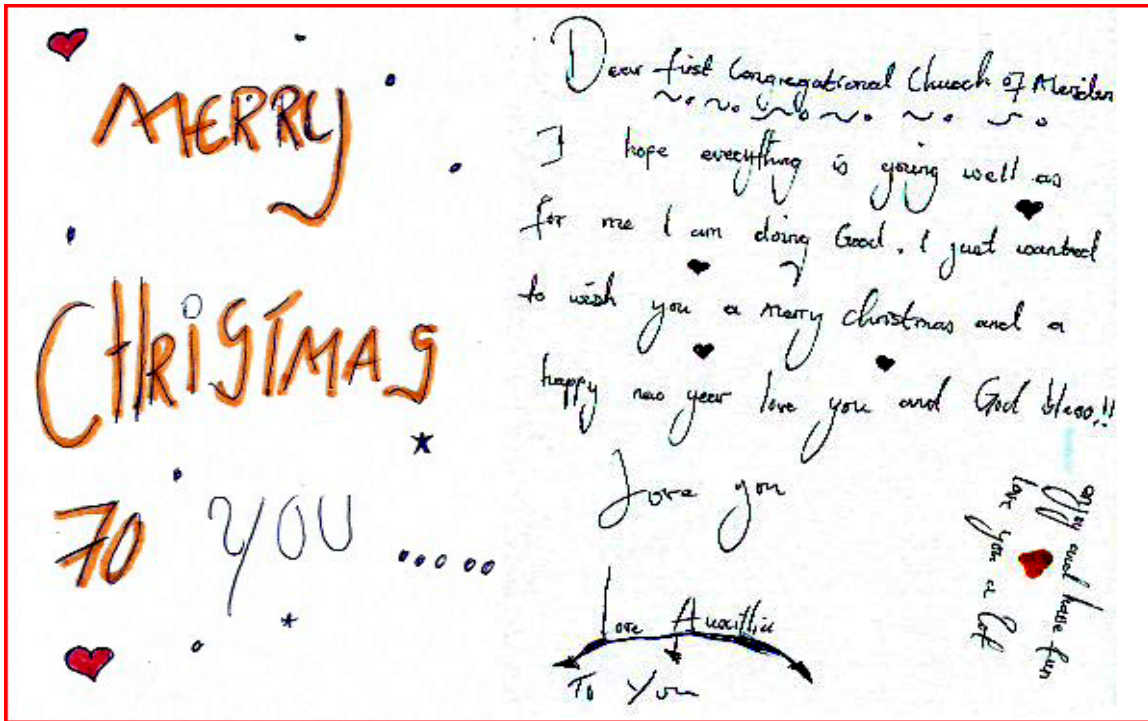 MERRY
CHRISTMAS
TO YOU .....
Dear first Congregational Church of Meriden
I hope everything is going well as
for me I am doing Good. I just wanted
to wish you a merry christmas and a
happy new year love you and God bless!!
Love you
Love
To You
enjoy and have fun
love you a lot